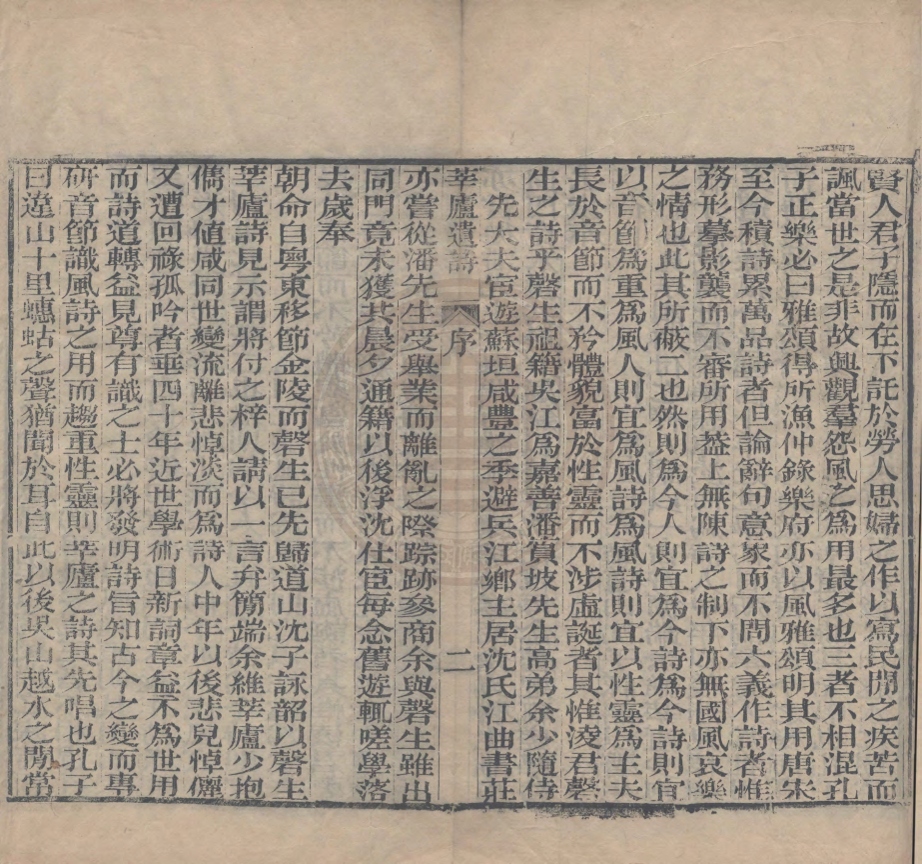 賢人君子隱而在下託於勞人思婦之作以寫民閒之疾苦而
諷當世之是非故興觀羣怨風之爲用最多也三者不相混孔
子正樂必曰雅頌得所漁仲錄樂府亦以風雅頌明其用唐宋
至今積詩累萬品詩者但論辭句意象而不問六義作詩者惟
務形摹影襲而不審所用葢上無陳詩之制下亦無國風哀樂
之情也此其所蔽二也然則爲今人則宜爲今詩爲今詩則宜
以音節爲重爲風人則宜爲風詩爲風詩則宜以性靈爲主夫
長於音節而不矜體貌富於性靈而不涉虛誕者其惟淩君磬
生之詩乎磬生祖籍吳江爲嘉善潘篔坡先生高弟余少隨侍
先大夫宦遊蘇垣咸豐之季避兵江鄉主居沈氏江曲書莊
莘廬遺詩
序
二
亦嘗從潘先生受舉業而離亂之際踪跡參商余與磬生雖出
同門竟未獲共晨夕通籍以後浮沈仕宦每念舊遊輒嗟學落
去歲奉
朝命自粵東移節金陵而磬生已先歸道山沈子詠韶以磬生
莘廬詩見示謂將付之梓人請以一言弁簡端余維莘廬少抱
儁才値咸同世變流離悲悼淡而爲詩人中年以後悲兒悼儷
又遭回祿孤吟者垂四十年近世學術日新詞章益不爲世用
而詩道轉益見尊有識之士必將發明詩旨知古今之變而專
研音節識風詩之用而趨重性靈則莘廬之詩其先唱也孔子
曰違山十里蟪蛄之聲猶聞於耳自此以後吳山越水之閒當